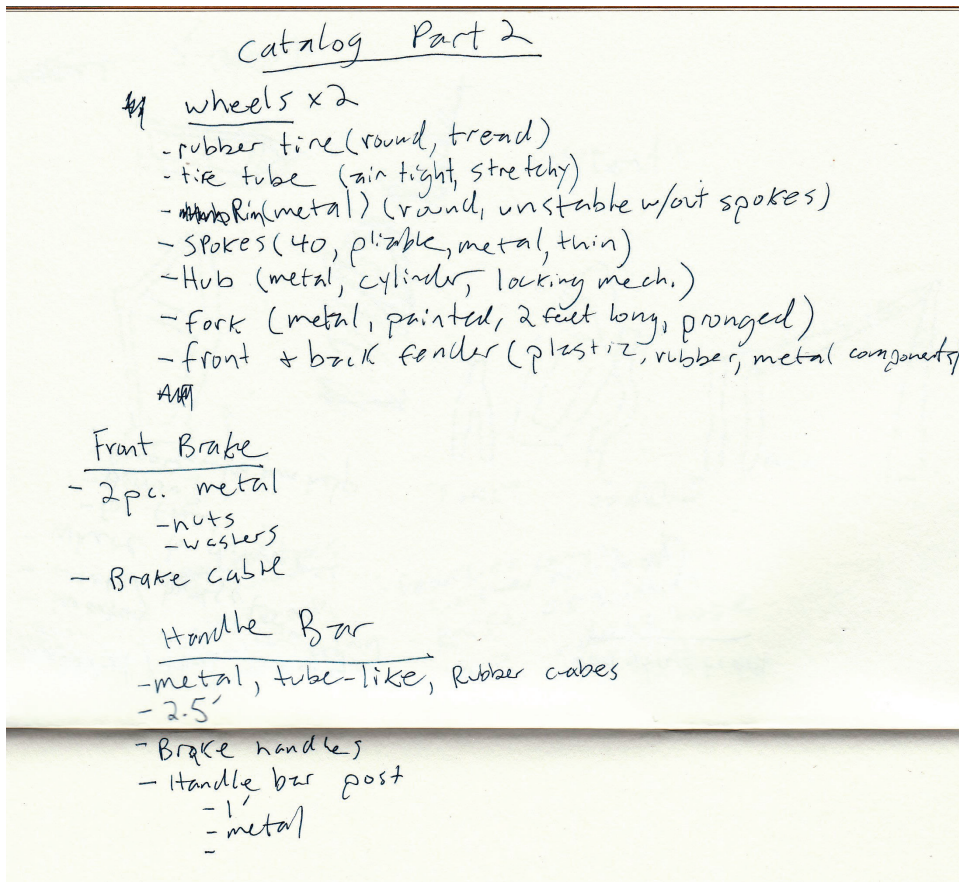 Catalog Part 2
wheels x2
- rubber tire (round, tread)
- tire tube (air tight, stretchy)
- Rim (metal) (round, unstable w/out spokes)
- Spokes (40, pliable, metal, thin)
- Hub (metal, cylinder, locking mech.)
- fork (metal, painted, 2 feet long, pronged)
- front + back fender (plastic, rubber, metal components)
Front Brake
- 2 pc. metal
- nuts
- washers
- Brake cable
Handle Bar
- metal, tube-like, Rubber
- 2.5'
- Brake handles
- Handle bar post
- 1'
- metal
-